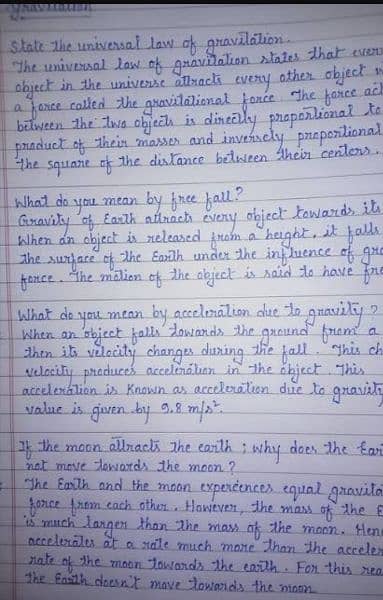 Gravitation
State the universal law of gravitation.
The universal law of gravitation states that ever
object in the universe attracts every other object
a force called the gravitational force. The force act
between the two objects is directly proportional to
product of their masses and inversely proportional
the square of the distance between their centers.
What do you mean by free fall?
Gravity of Earth attracts every object towards its
When an object is released from a height, it falls
the surface of the Earth under the influence of gra
force. The motion of the object is said to have fre
What do you mean by acceleration due to gravity?
When an object falls towards the ground from a
then its velocity changes during the fall. This ch
velocity produces acceleration in the object. This
acceleration is Known as acceleration due to gravity
value is given by 9.8 m/s².
If the moon attracts the earth; why does the Ear
not move towards the moon?
The Earth and the moon experences equal gravita
force from each other. However, the mass of the E
is much larger than the mass of the moon. Hen
accelerates at a rate much more than the acceler
rate of the moon towards the earth. For this rea
the Earth doesn't move towards the moon